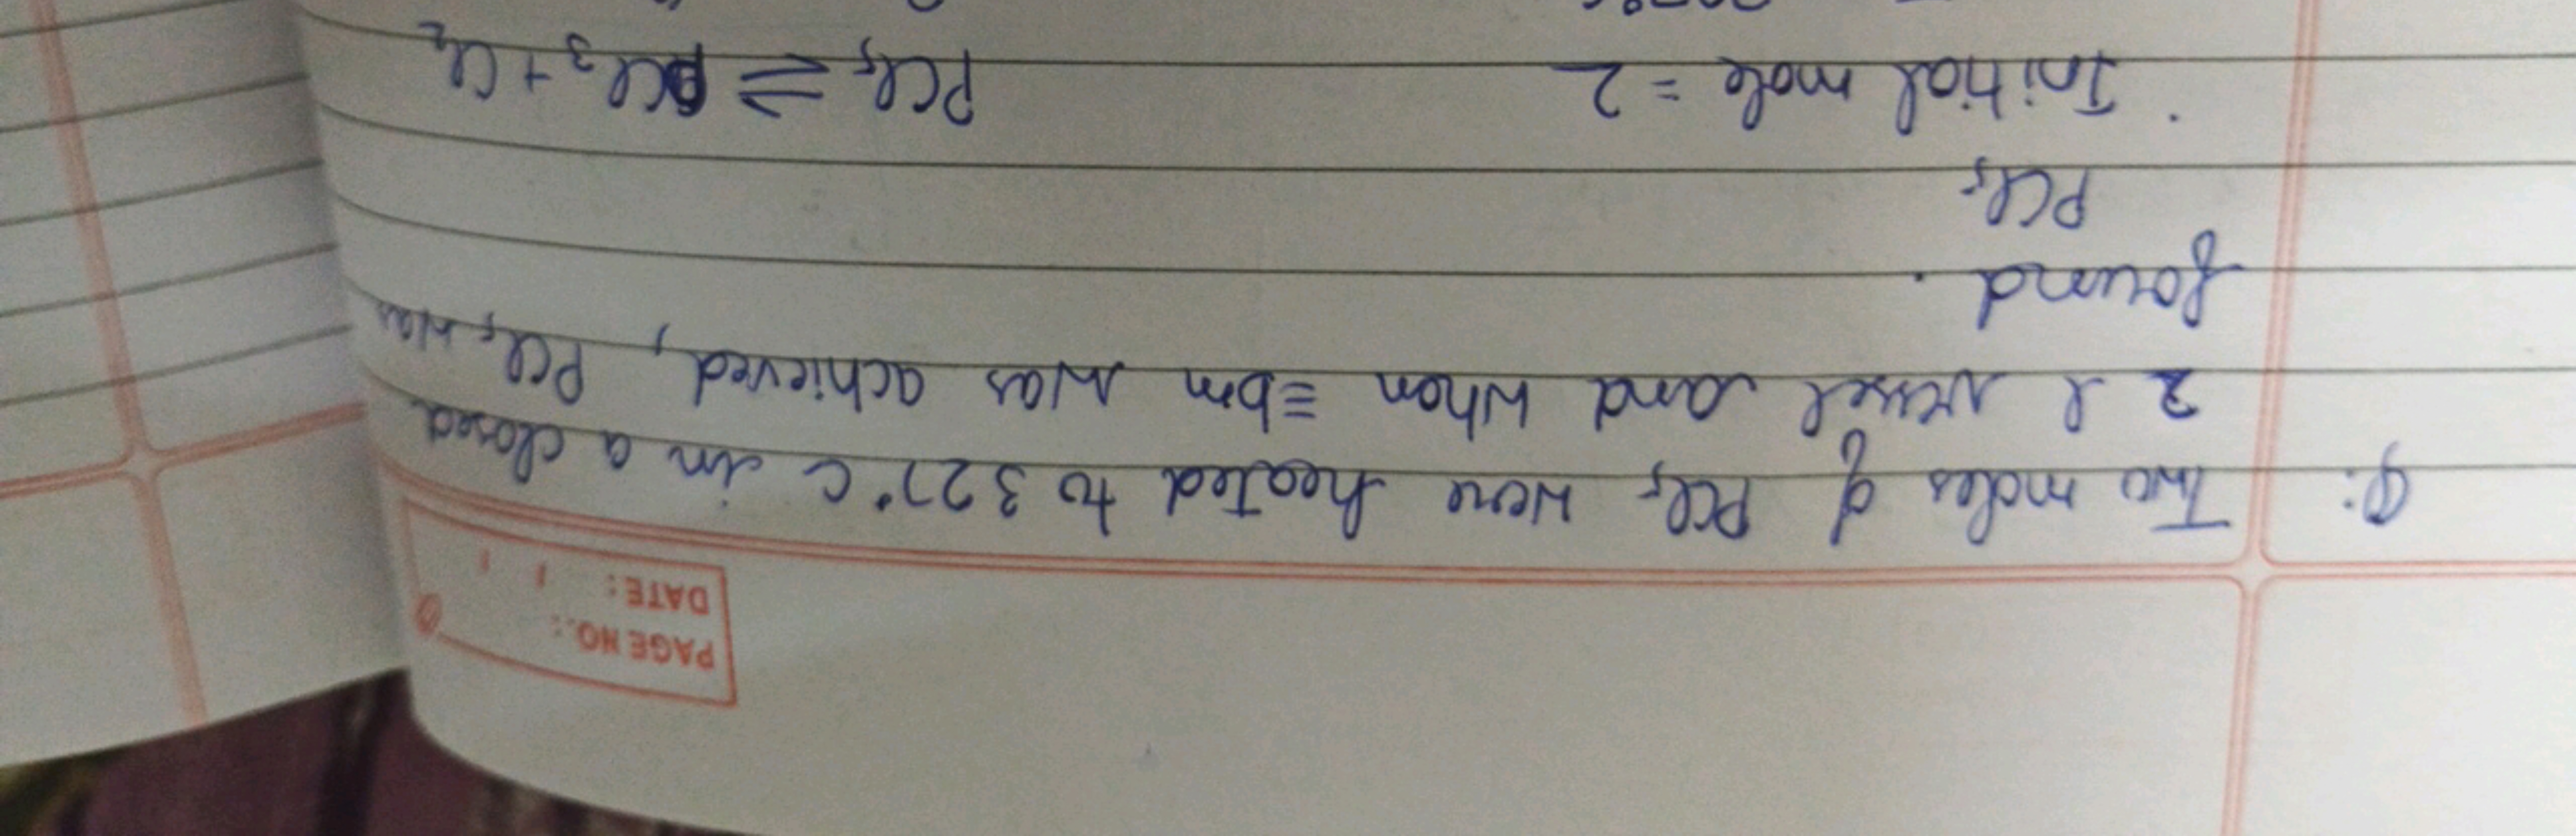 PAGE NO.:
DATE: / /
Q: Two moles of PCl₅ were heated to 327°C in a closed
2 l vessel and when ≡bm was achieved, PCl₅ was
found.
PCl₅
Initial mole = 2 PCl₅ ⇌ PCl₃ + Cl₂